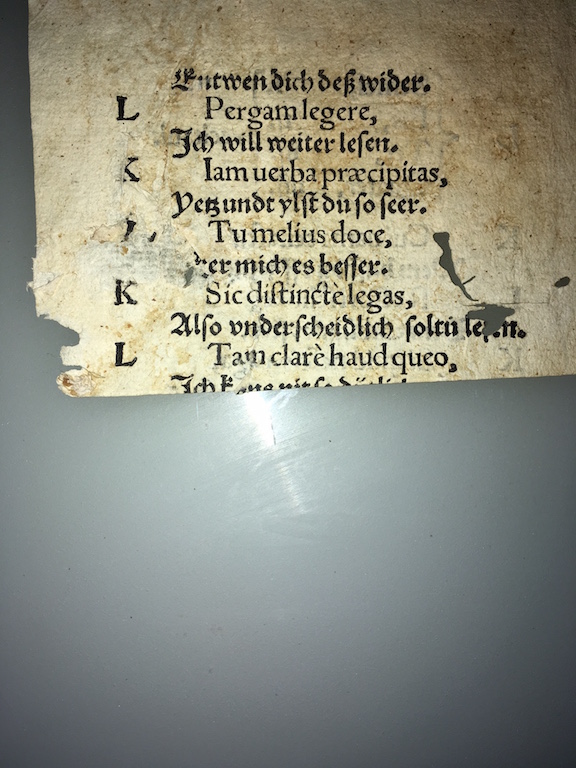 Entwen dich deß wider.
L Pergam legere,
Ich will weiter lesen.
K Iam uerba præcipitas,
Yetzundt ylst du so seer.
L Tu melius doce,
mich es besser.
K Sic distincte legas,
Also vnderscheidlich soltů lesen.
L Tam clarè haud queo,
Ich